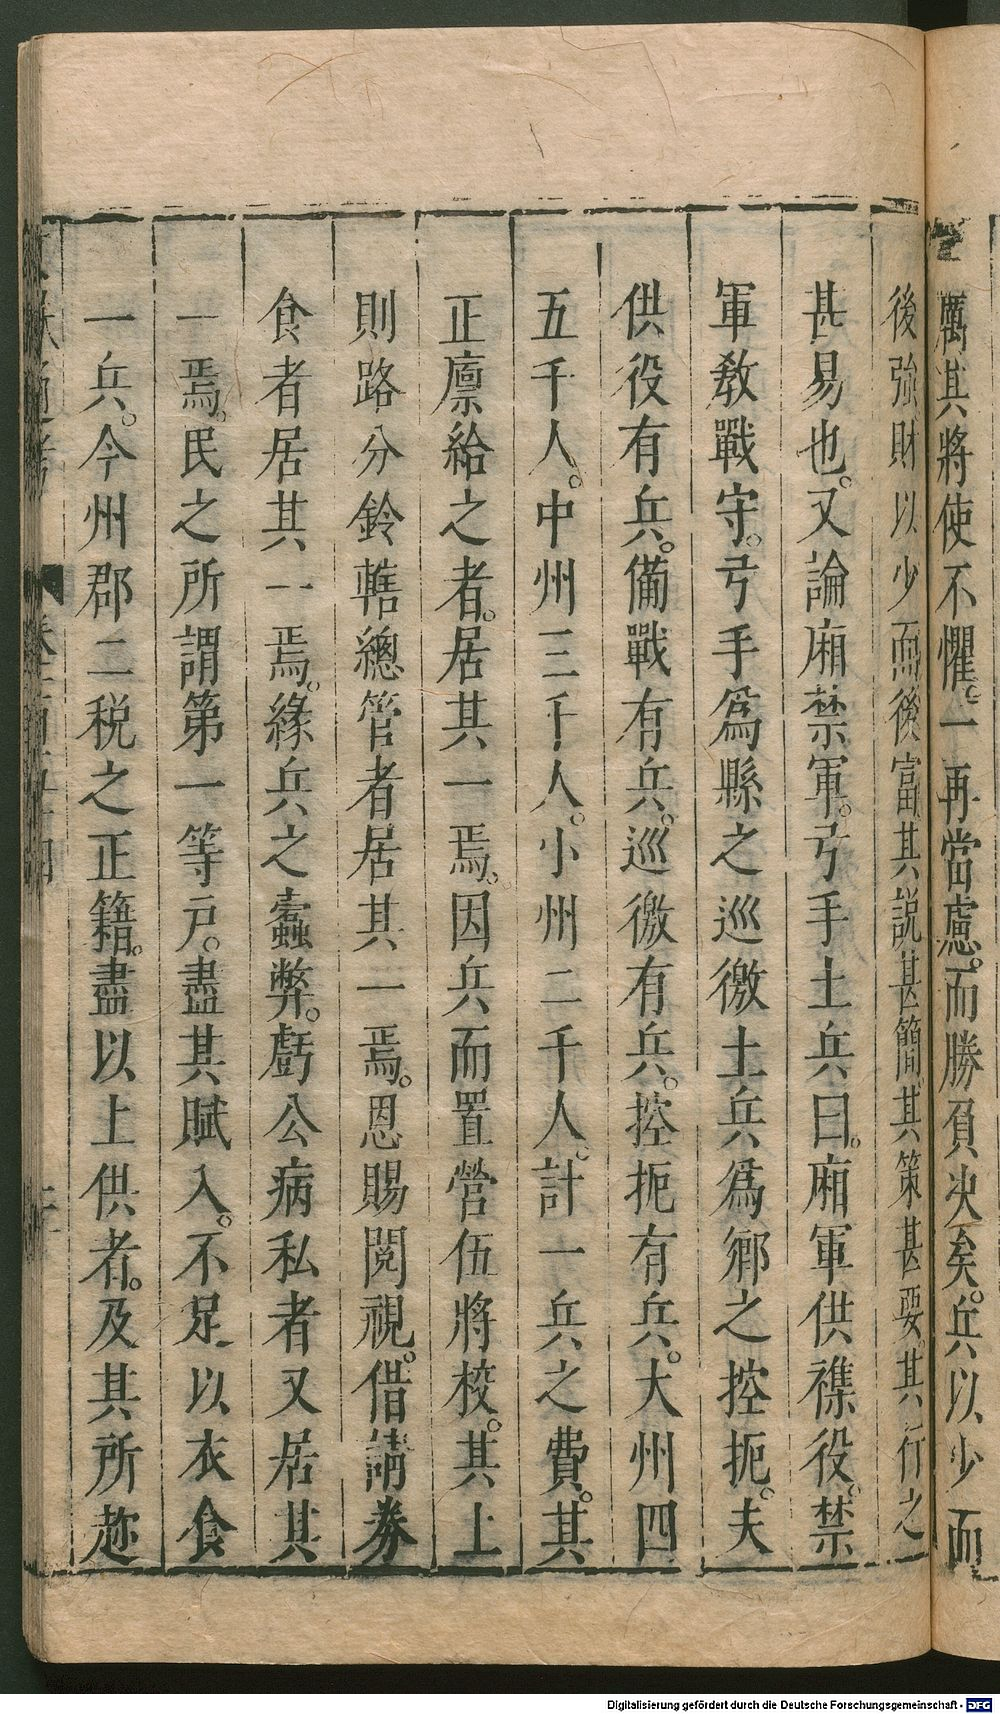 厲其將使不懼。一再當慮。而勝負决矣。兵以少而
後強財以少而後富其説甚簡其策甚要其行之
甚易也。又論廂禁軍。弓手土兵曰。廂軍供襍役。禁
軍教戰守。弓手爲縣之巡徼土兵爲鄉之控扼。夫
供役有兵。備戰有兵。巡徼有兵。控扼有兵。大州四
五千人。中州三千人。小州二千人。計一兵之費。其
正廪給之者。居其一焉。因兵而置營伍將校。其上
則路分鈐轄總管者居其一焉。恩賜閱視。借請券
食者居其一焉。緣兵之蠹弊。虧公病私者又居其
一焉。民之所謂第一等户。盡其賦入。不足以衣食
一兵。今州郡二税之正籍。盡以上供者。及其所趂
文獻通考
Digitalisierung gefördert durch die Deutsche Forschungsgemeinschaft - DFG